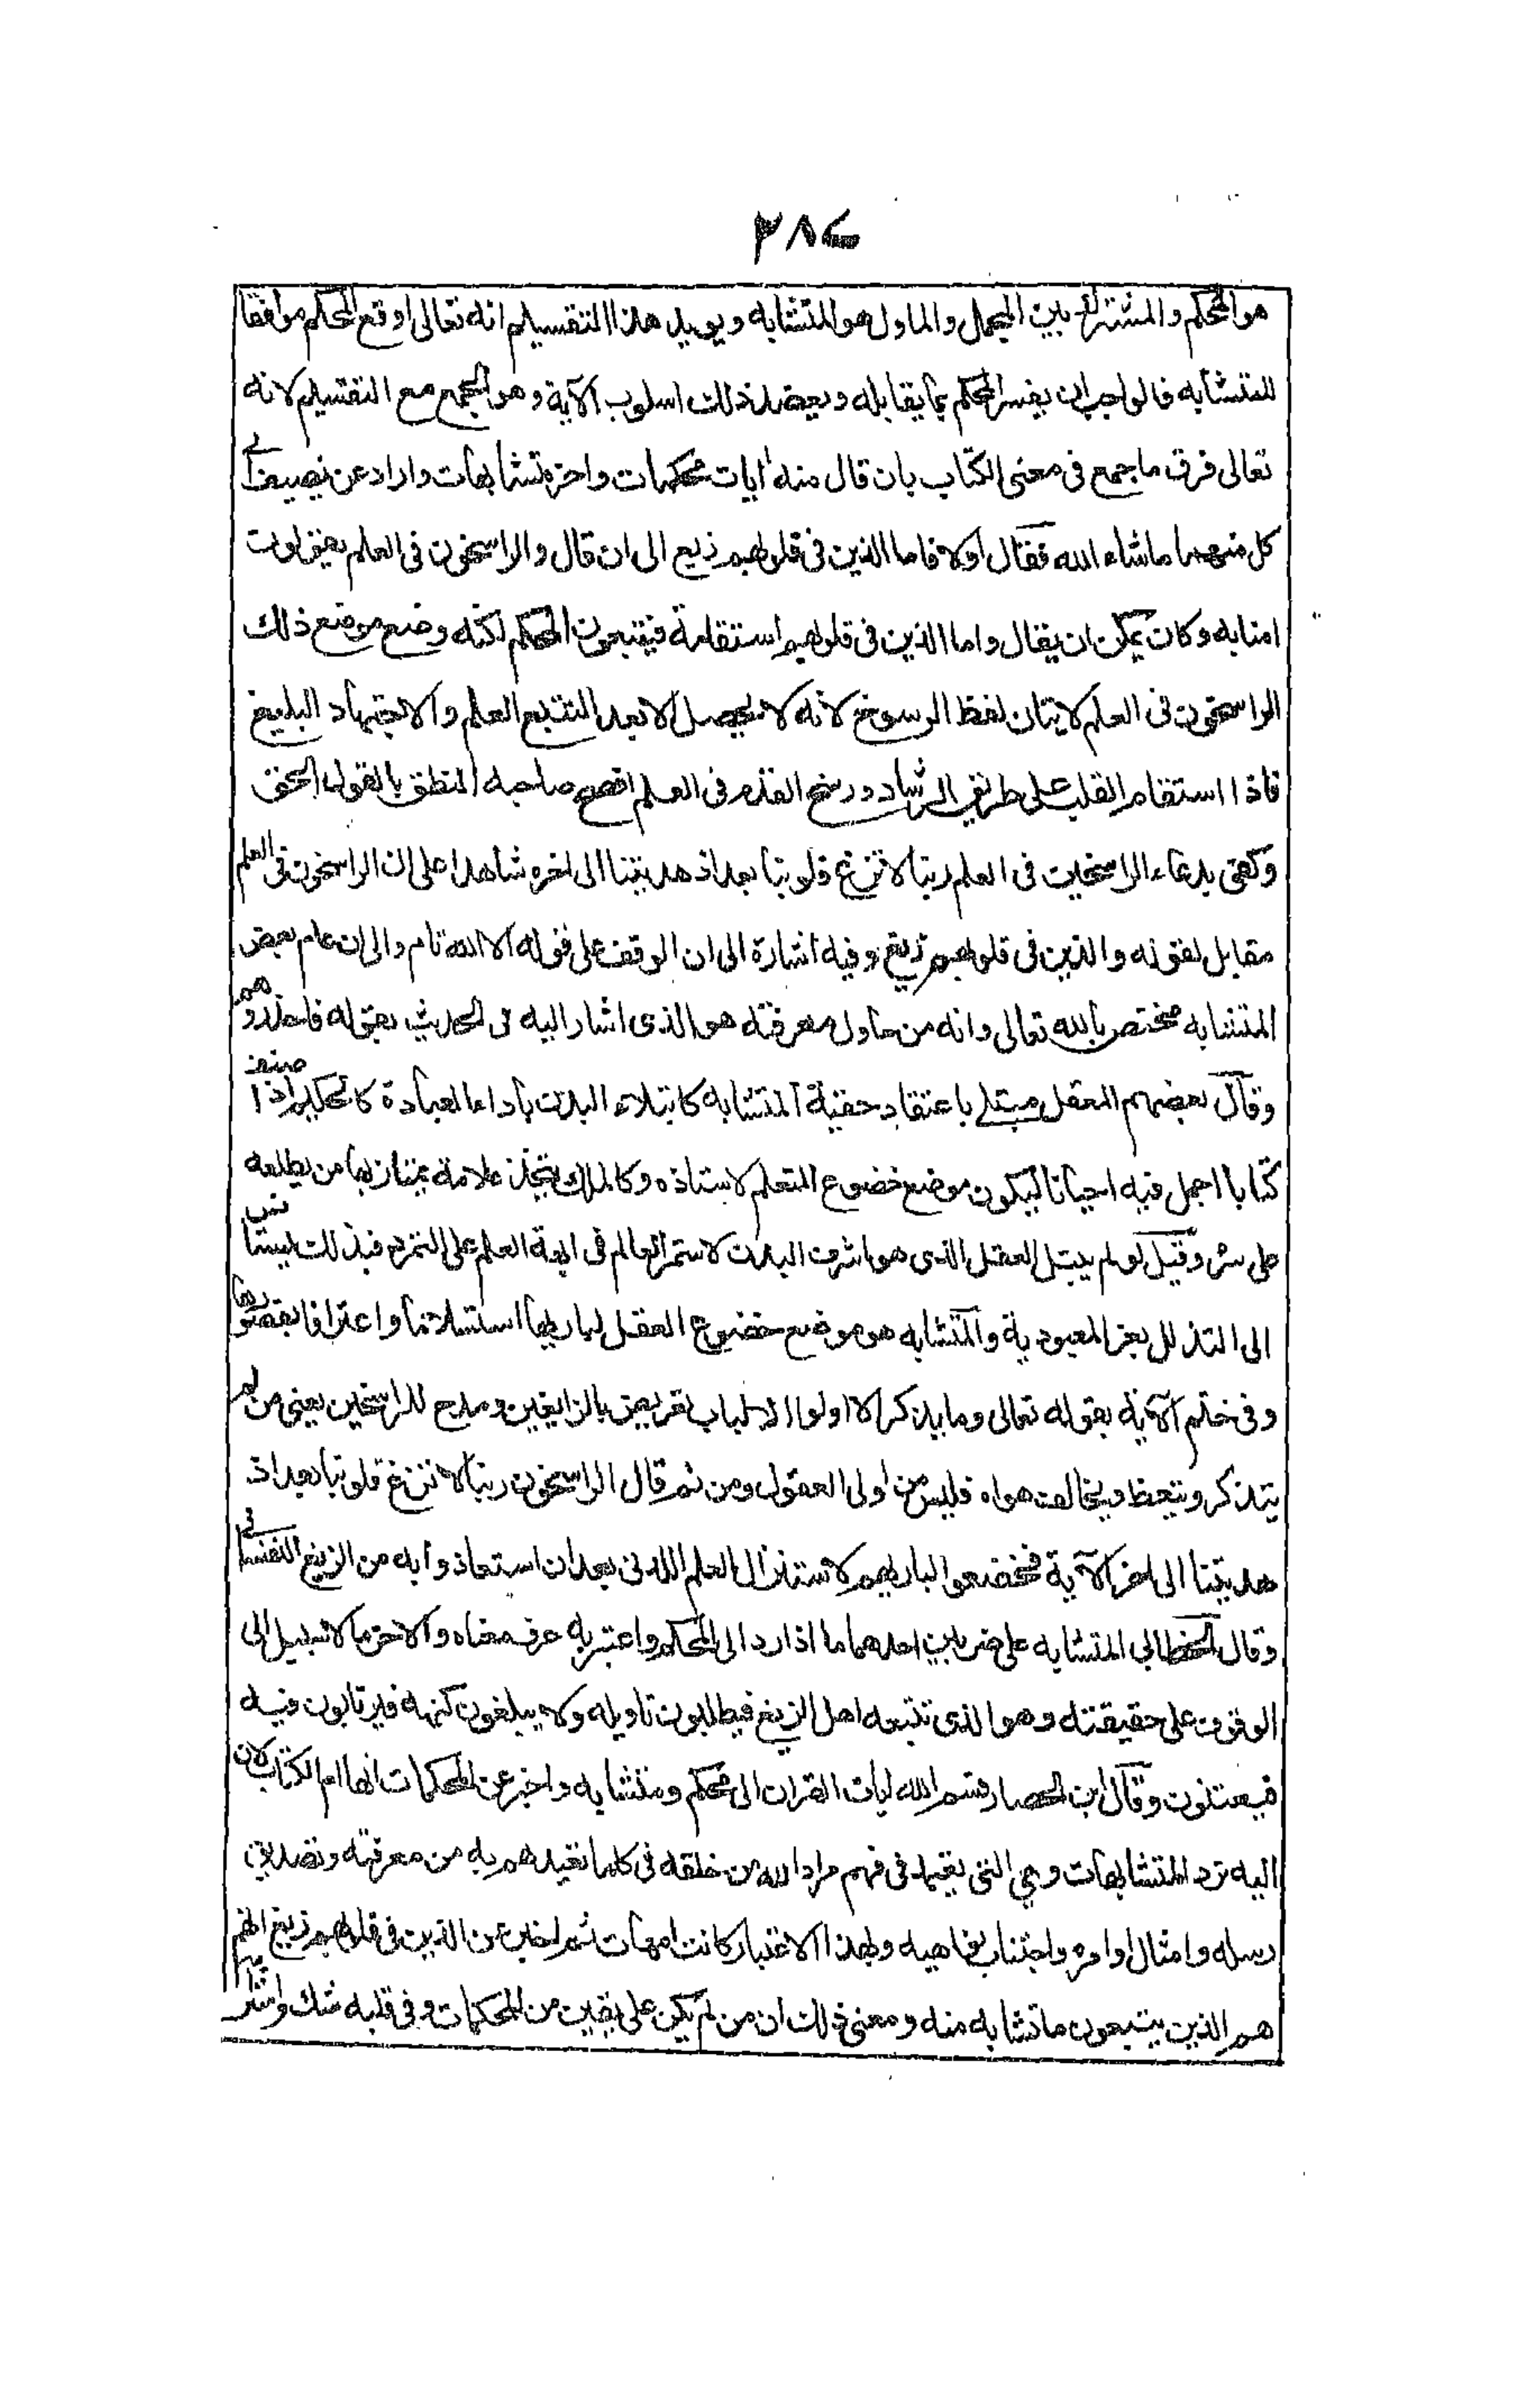 ٣٨٦
هو المحكم والمشترك بين المجمل والماول هو المتشابه ويويد هذا التقسيم انه تعالى اوقع المحكم موافقا
للمتشابه فالواجب ان يفسر المحكم بما يقابله ويعضد ذلك اسلوب الآية وهو الجمع مع التقسيم لانه
تعالى فرق ما جمع فى معنى الكتاب بان قال منه ايات محكمات واخر متشابهات واراد ان يضيف الى
كل منهما ما شاء الله فقال اولا فاما الذين فى قلوبهم زيغ الى ان قال والراسخون فى العلم يقولون
امنا به وكان يمكن ان يقال واما الذين فى قلوبهم استقامة فيتبعون المحكم لكنه وضع موضع ذلك
الراسخون فى العلم لاتيان لفظ الرسوخ لانه لا يحصل الا بعد التتبع العلم والاجتهاد البليغ
فاذا استقام القلب على طريق الرشاد ورسخ القدم فى العلم افصح صاحبه المنطق بالقول الحق
وكفى بدعاء الراسخين فى العلم ربنا لا تزغ قلوبنا بعد اذ هديتنا الى اخره شاهدا على ان الراسخون فى العلم
مقابل لقوله والذين فى قلوبهم زيغ وفيه اشارة الى ان الوقف على قوله الا الله تام والى ان علم بعض
المتشابه مختص بالله تعالى وانه من حاول معرفته هو الذى اشار اليه فى الحديث بقوله فاحذروهم
وقال بعضهم العقل مبتلى باعتقاد حقية المتشابه كابتلاء البدن باداء العبادة كالحكيم اذا صنف
كتابا اجمل فيه احيانا ليكون موضع خضوع المتعلم لاستاذه وكالملك يتخذ علامة يمتاز بها من يطلعه
على سر وقيل لو لم يبتل العقل الذى هو اشرف البدن لاستمر العالم فى ابهة العلم على التمرد فبذلك يستانس
الى التذلل بعز العبودية والمتشابه هو موضع خضوع العقل لباريها استسلاما واعترافا بقصورها
وفى ختم الآية بقوله تعالى وما يذكر الا اولوا الالباب تعريض بالزايغين ومدح للراسخين يعنى من لم
يتذكر ويتعظ ويخالف هواه فليس من اولى العقول ومن ثم قال الراسخون ربنا لا تزغ قلوبنا بعد اذ
هديتنا الى اخر الآية فخضعوا لباريهم لاستنزال العلم اللدنى بعد ان استعاذوا به من الزيغ النفسانى
وقال الخطابى المتشابه على ضربين احدهما ما اذا رد الى المحكم واعتبر به عرف معناه والاخر ما لا سبيل الى
الوقوف على حقيقته وهو الذى تتبعه اهل الزيغ فيطلبون تاويله ولا يبلغون كنهه فيرتابون فيه
فيفتنون وقال ابن الحصار قسم الله ايات القران الى محكم ومتشابه واخبر عن المحكمات انها ام الكتاب لان
اليه ترد المتشابهات وهى التى تعتمد فى فهم مراد الله من خلقه فى كلما تعبدهم به من معرفته وتصديق
رسله وامثال اوامره واجتناب نواهيه ولهذا الاعتبار كانت امهات ثم اخبر عن الذين فى قلوبهم زيغ انهم
هم الذين يتبعون ما تشابه منه ومعنى ذلك ان من لم يكن على يقين من المحكمات وفى قلبه شك واشتر